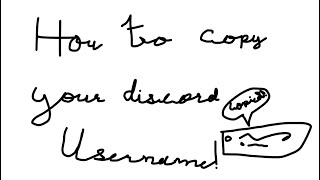 How to copy
your discord
copied!
Username!